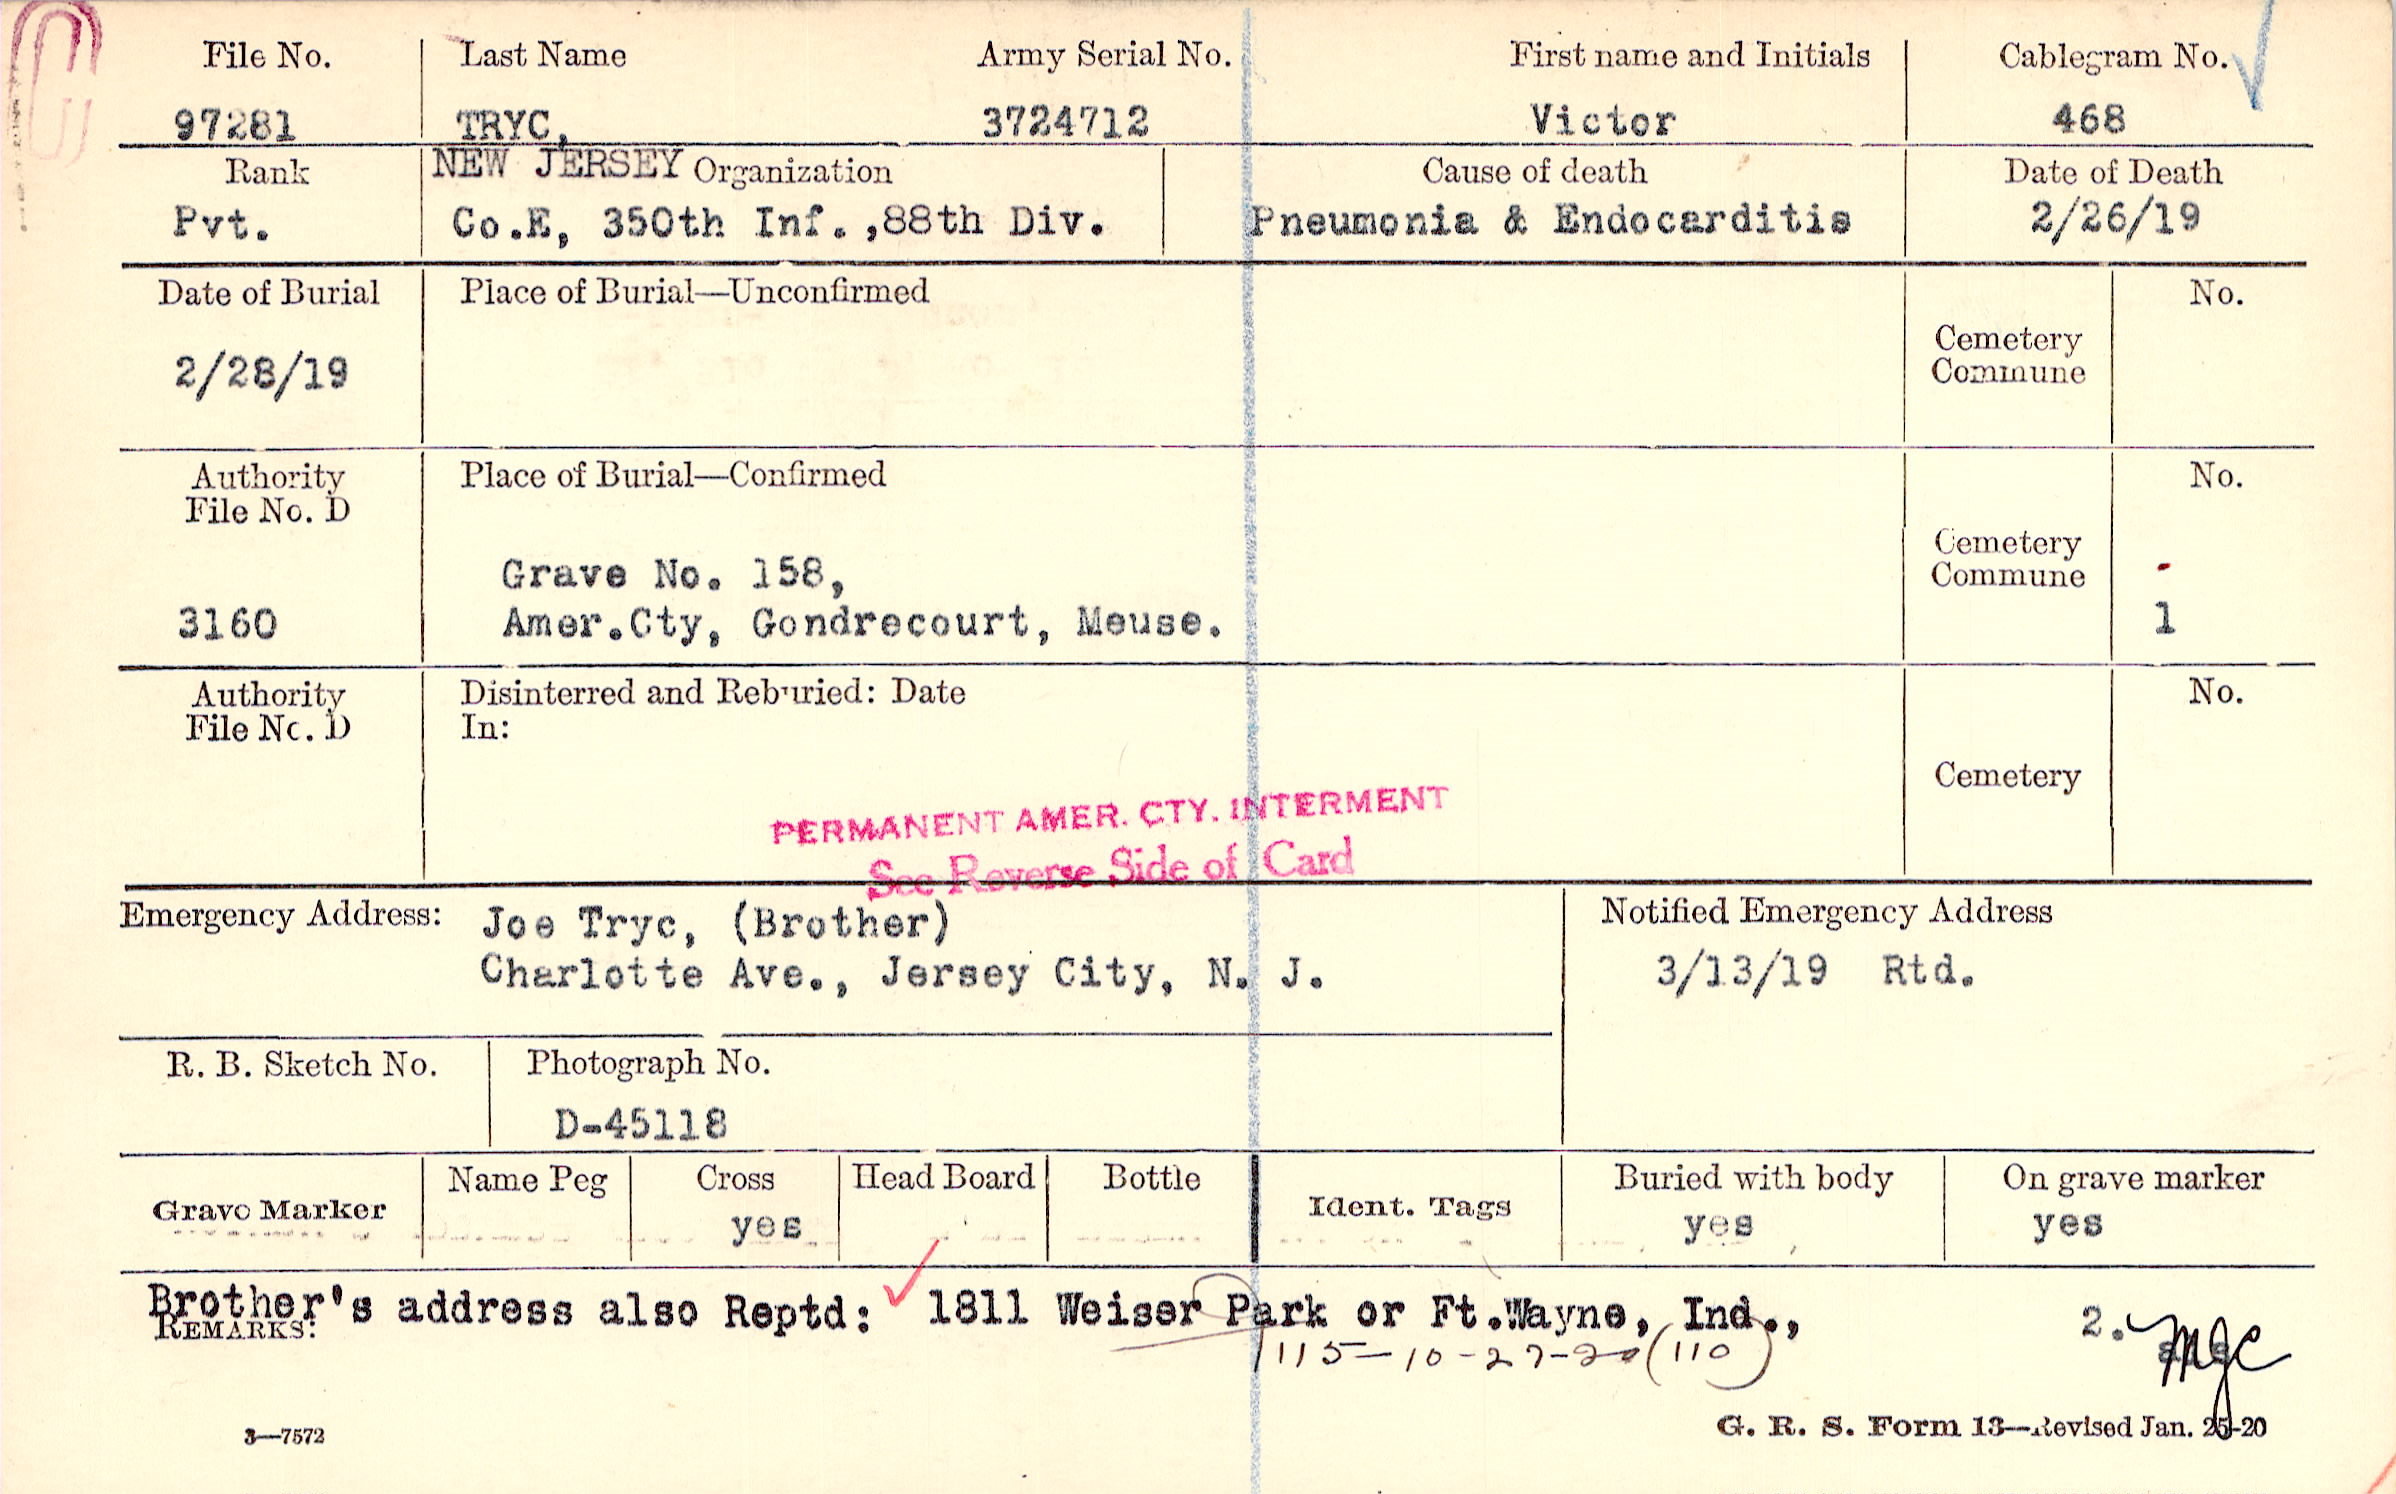 File No. Last Name Army Serial No. First name and Initials Cablegram No.
97281 TRYC, 3724712 Victor 468
Rank NEW JERSEY Organization Cause of death Date of Death
Pvt. Co.E, 350th Inf.,88th Div. Pneumonia & Endocarditis 2/26/19
Date of Burial Place of Burial—Unconfirmed No.
Cemetery
Commune
2/28/19
Authority Place of Burial—Confirmed No.
File No. D
Cemetery
Commune
Grave No. 158,
3160 Amer.Cty, Gondrecourt, Meuse. 1
Authority Disinterred and Reburied: Date No.
File No. D In:
Cemetery
PERMANENT AMER. CTY. INTERMENT
See Reverse Side of Card
Emergency Address: Joe Tryc, (Brother) Notified Emergency Address
Charlotte Ave., Jersey City, N. J. 3/13/19 Rtd.
R. B. Sketch No. Photograph No.
D-45118
Grave Marker Name Peg Cross Head Board Bottle Ident. Tags Buried with body On grave marker
yes yes yes
Brother's address also Reptd: 1811 Weiser Park or Ft.Wayne, Ind., 2.
REMARKS:
115-10-27-20 (110) MJC
3—7572 G. R. S. Form 13—Revised Jan. 25-20